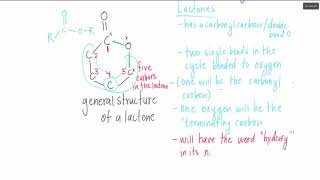 Lactones
- has a carbonyl carbon/double bond O
- two single bonds in the cycle bonded to oxygen
- (one will be the carbonyl carbon)
- one oxygen will be the "terminating carbon
- will have the word "hydroxy" in its n
O
C
O-R
R
O
C
O
C
2
3
4
5
C
C
five carbons in the lactone
general structure of a lactone